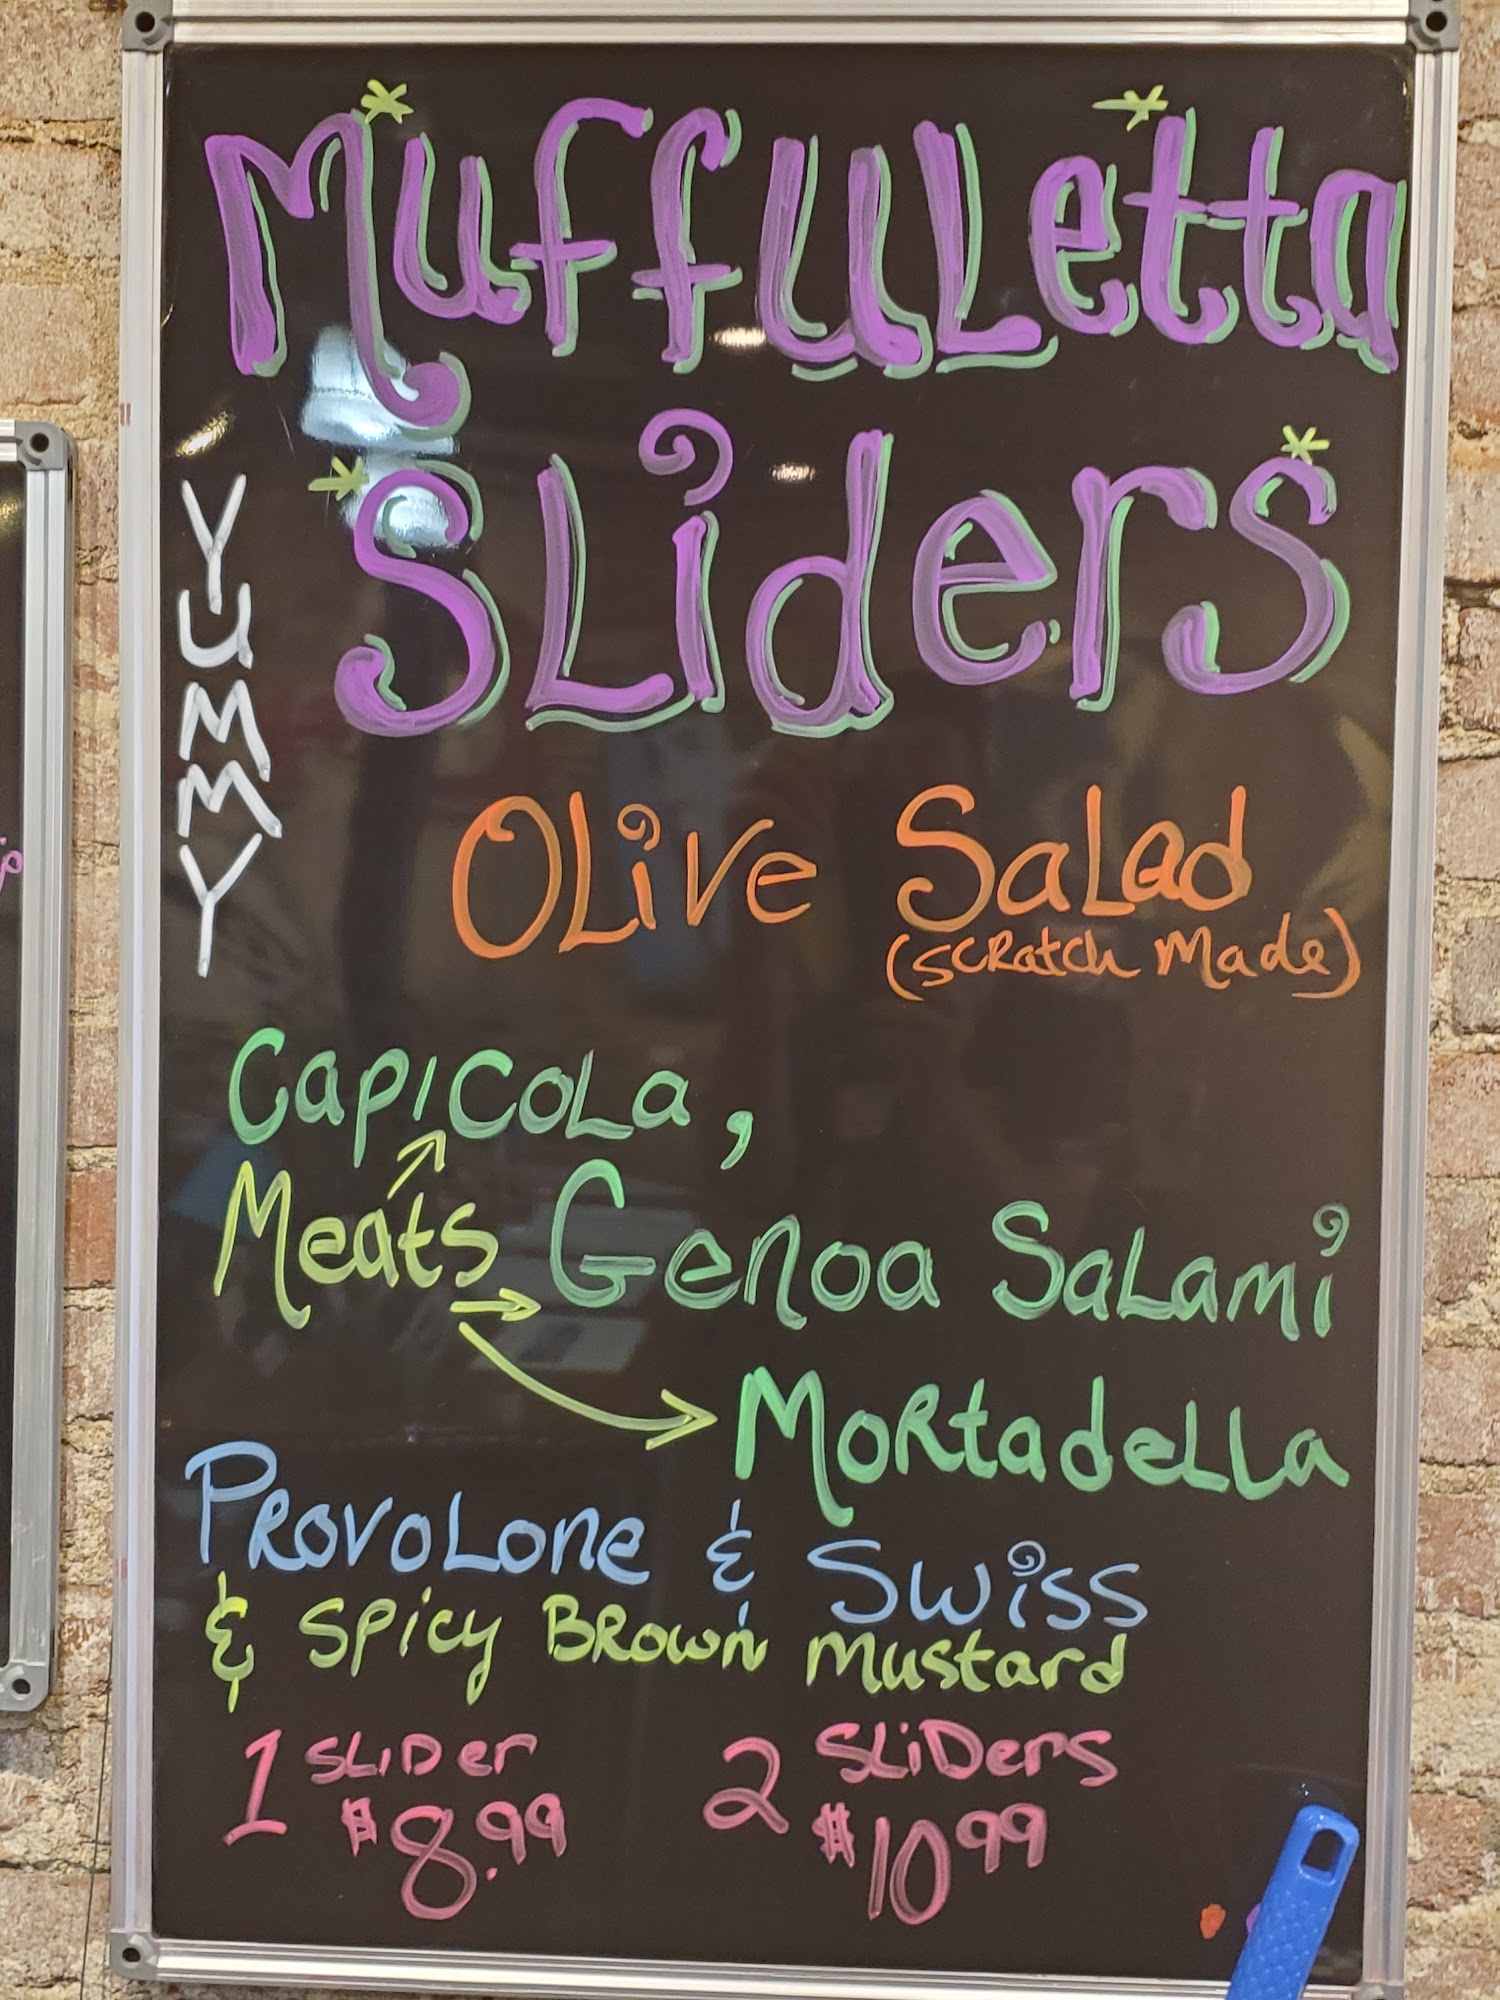 Muffuletta
Sliders
YUMMY
Olive Salad
(Scratch Made)
Capicola,
Meats Genoa Salami
Mortadella
Provolone & Swiss
& Spicy Brown Mustard
1 Slider 2 Sliders
$8.99 $10 99